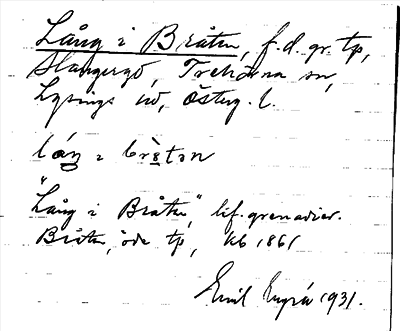 Lång i Bråten, f.d. gr. tp,
Slangergö, Trehörna sn,
Ydre hd, Österg. l.
låŋ i bròtən
"Lång i Bråten," lif.grenadier.
Bråten, öde tp, kb 1861
Emil 1931.